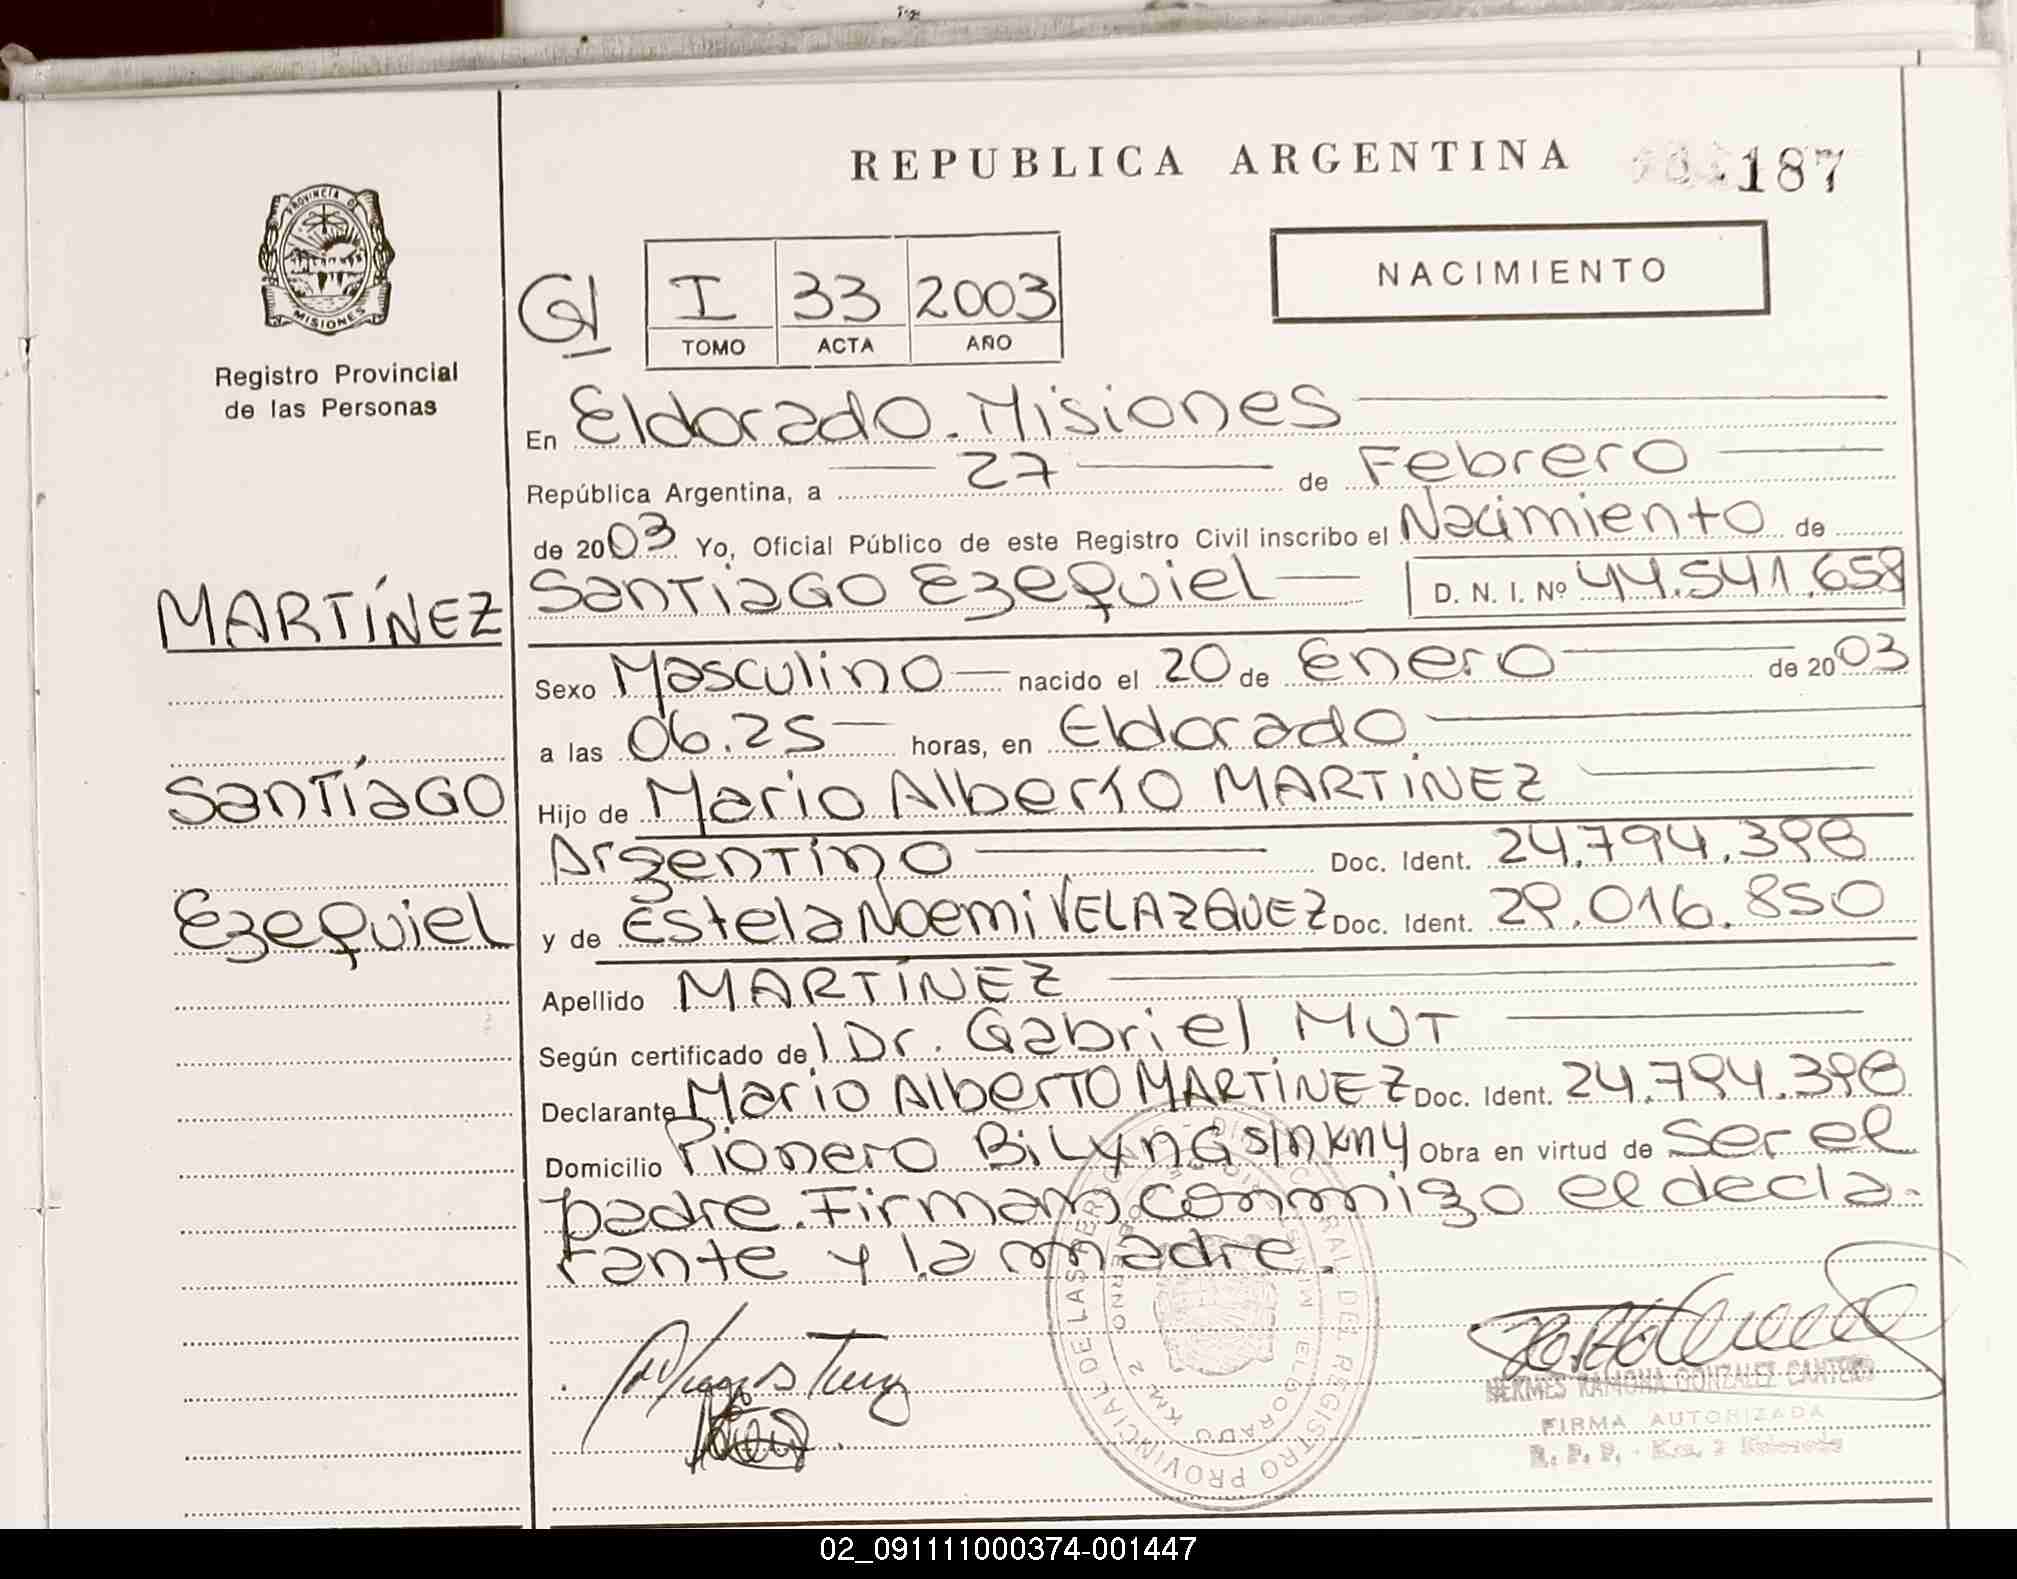 REPUBLICA ARGENTINA
187
PROVINCIA DE
MISIONES
Registro Provincial
de las Personas
I 33 2003
TOMO ACTA AÑO
NACIMIENTO
En Eldorado. Misiones
República Argentina, a 27 de Febrero
de 2003 Yo, Oficial Público de este Registro Civil inscribo el Nacimiento de
MARTÍNEZ
Santiago Ezequiel D. N. I. Nº 44.541.658
Sexo Masculino nacido el 20 de Enero de 2003
a las 06.25 horas, en Eldorado
Santiago
Hijo de Mario Alberto MARTÍNEZ
Argentino Doc. Ident. 24.794.398
Ezequiel
y de Estela Noemi VELAZQUEZ Doc. Ident. 29.016.850
Apellido MARTÍNEZ
Según certificado del Dr. Gabriel MUT
Declarante Mario Alberto MARTÍNEZ Doc. Ident. 24.794.398
Domicilio Pionero BiLYNG S/N KM4 Obra en virtud de Ser el
padre. Firman conmigo el decla-
rante y la madre.
REGISTRO PROVINCIAL DE LAS
ELDORADO KM 2
HERMES RAMONA GONZALEZ CANTERO
FIRMA AUTORIZADA
R. P. P. - Km. 2 Eldorado
02_091111000374-001447